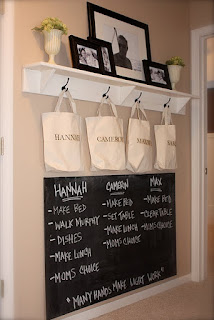 HANNAH CAMERON MAX
HANNAH
- MAKE BED
- WALK MURPHY
- DISHES
- MAKE LUNCH
- MOM'S CHOICE
CAMERON
- MAKE BED
- SET TABLE
- MAKE LUNCH
- MOM'S CHOICE
MAX
- MAKE BED
- CLEAR TABLE
- MOM'S CHOICE
"MANY HANDS MAKE LIGHT WORK"